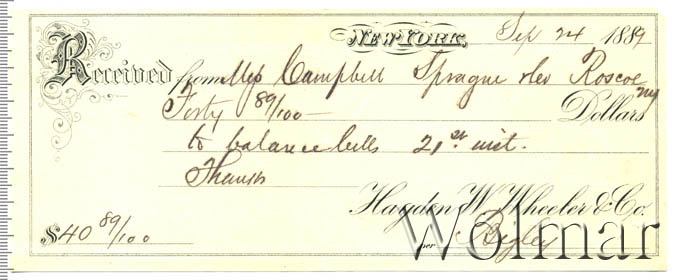 New York, Sep 24 1889
Received from Mess Campbell Sprague Roscoe
NY
Forty 89/100 Dollars
to balance bills 21st inst.
Thanks
Hayden W. Wheeler & Co.
$40 89/100 per Bigley
Wolmar